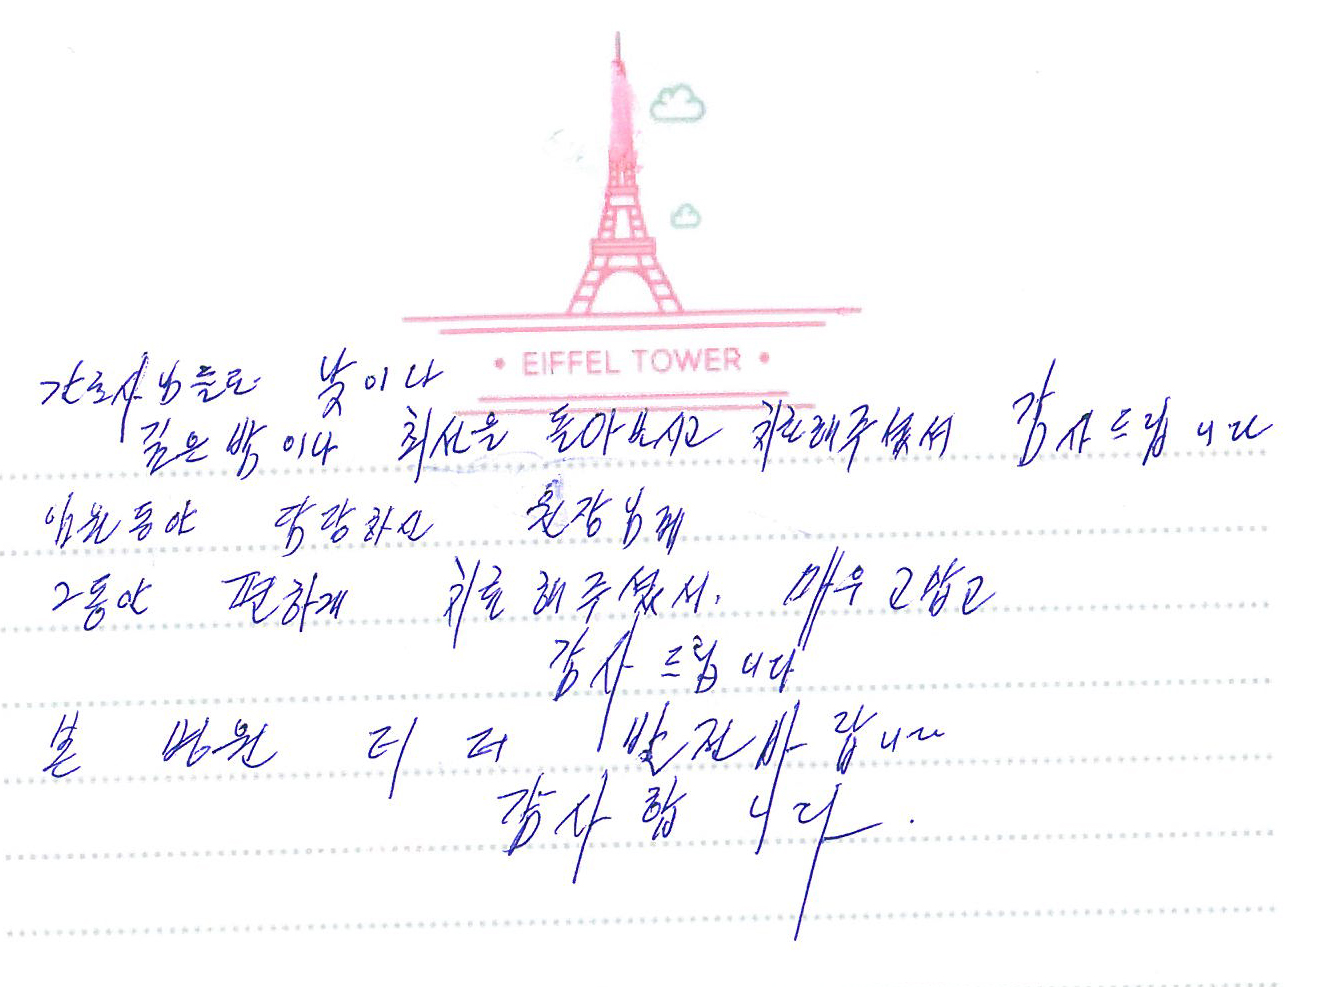 • EIFFEL TOWER •
간호사님들도 낮이나
깊은 밤이나 최선을 돌아보시고 치료해주셨서 감사드립니다
입원동안 담당하신 원장님께
그동안 편하게 치료해주셨서. 매우 고맙고
감사드립니다
본 병원 더 더 발전바랍니다
감사합니다.